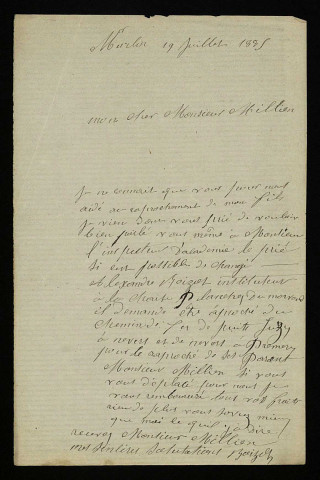 Murlin 19 Juillet 1895
mon cher Monsieur Millien
Je ne connait que vous pour nous
aidé au raprochement de mon fils
Je vien donc vous prié de vouloir
bien parlé vous même à Monsieur
l'inspecteur d'academie le prié
si est possible de changé
Alexandre Boizot instituteur
à la chaux Planchez du morvan
il demande être àproché du
chemin de fer de
à nevers et de nevers à Prémery
pour le raproché de ses Parent
Monsieur Millien si vous
vous déplacé pour nous je
vous rembourserai tous vos frais
rien de plus vous savez mieu
que moi ce quil y a dire
recevez Monsieur Millien
mes sincères salutations Boizot